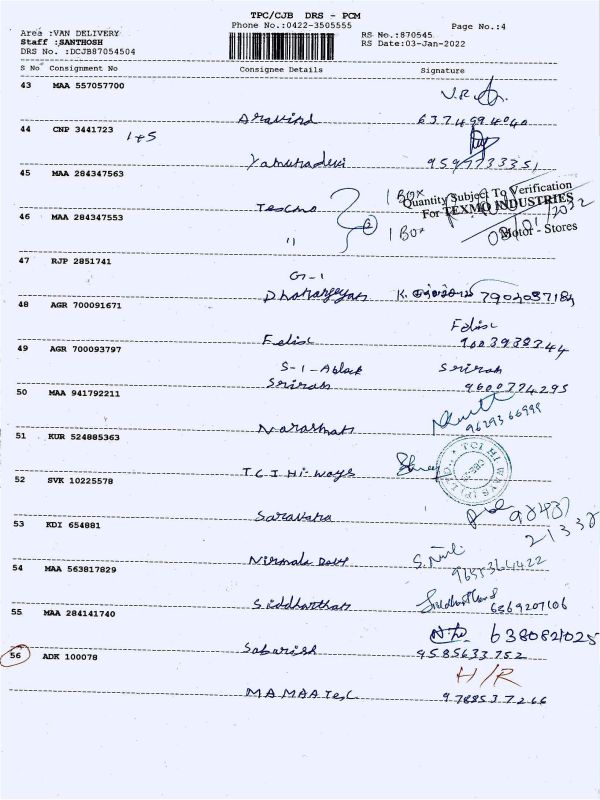 TPC/CJB DRS - PCM
Phone No.:0422-3505555
Page No.:4
Area :VAN DELIVERY
RS No.:870545
Staff :SANTHOSH
RS Date:03-Jan-2022
DRS No. :DCJB87054504
S No Consignment No Consignee Details Signature
43 MAA 557057700
Aravind 6374994040
44 CNP 3441723
1+5
Yamunadevi 9597733351
45 MAA 284347563
1 Box
Quantity Subject To Verification
For TEXMO INDUSTRIES
Motor - Stores
Texmo
46 MAA 284347553
1 Box
03/01/2022
"
47 RJP 2851741
G-1
Dhananjeyan K. 7902037184
48 AGR 700091671
Felix
Felix
49 AGR 700093797
S-1-A block Sriram
Sriram 9600774295
50 MAA 941792211
9629366999
Narasimhan
51 KUR 524885363
T.C.I Hi-ways
52 SVK 10225578
Saravana
53 KDI 654881
21338
Nirmala Devi S.
54 MAA 563817829
Siddharthan 6369207106
55 MAA 284141740
6380821025
Sabarish 9585633752
56 ADK 100078
H/R
MAMAATEX 9788537266